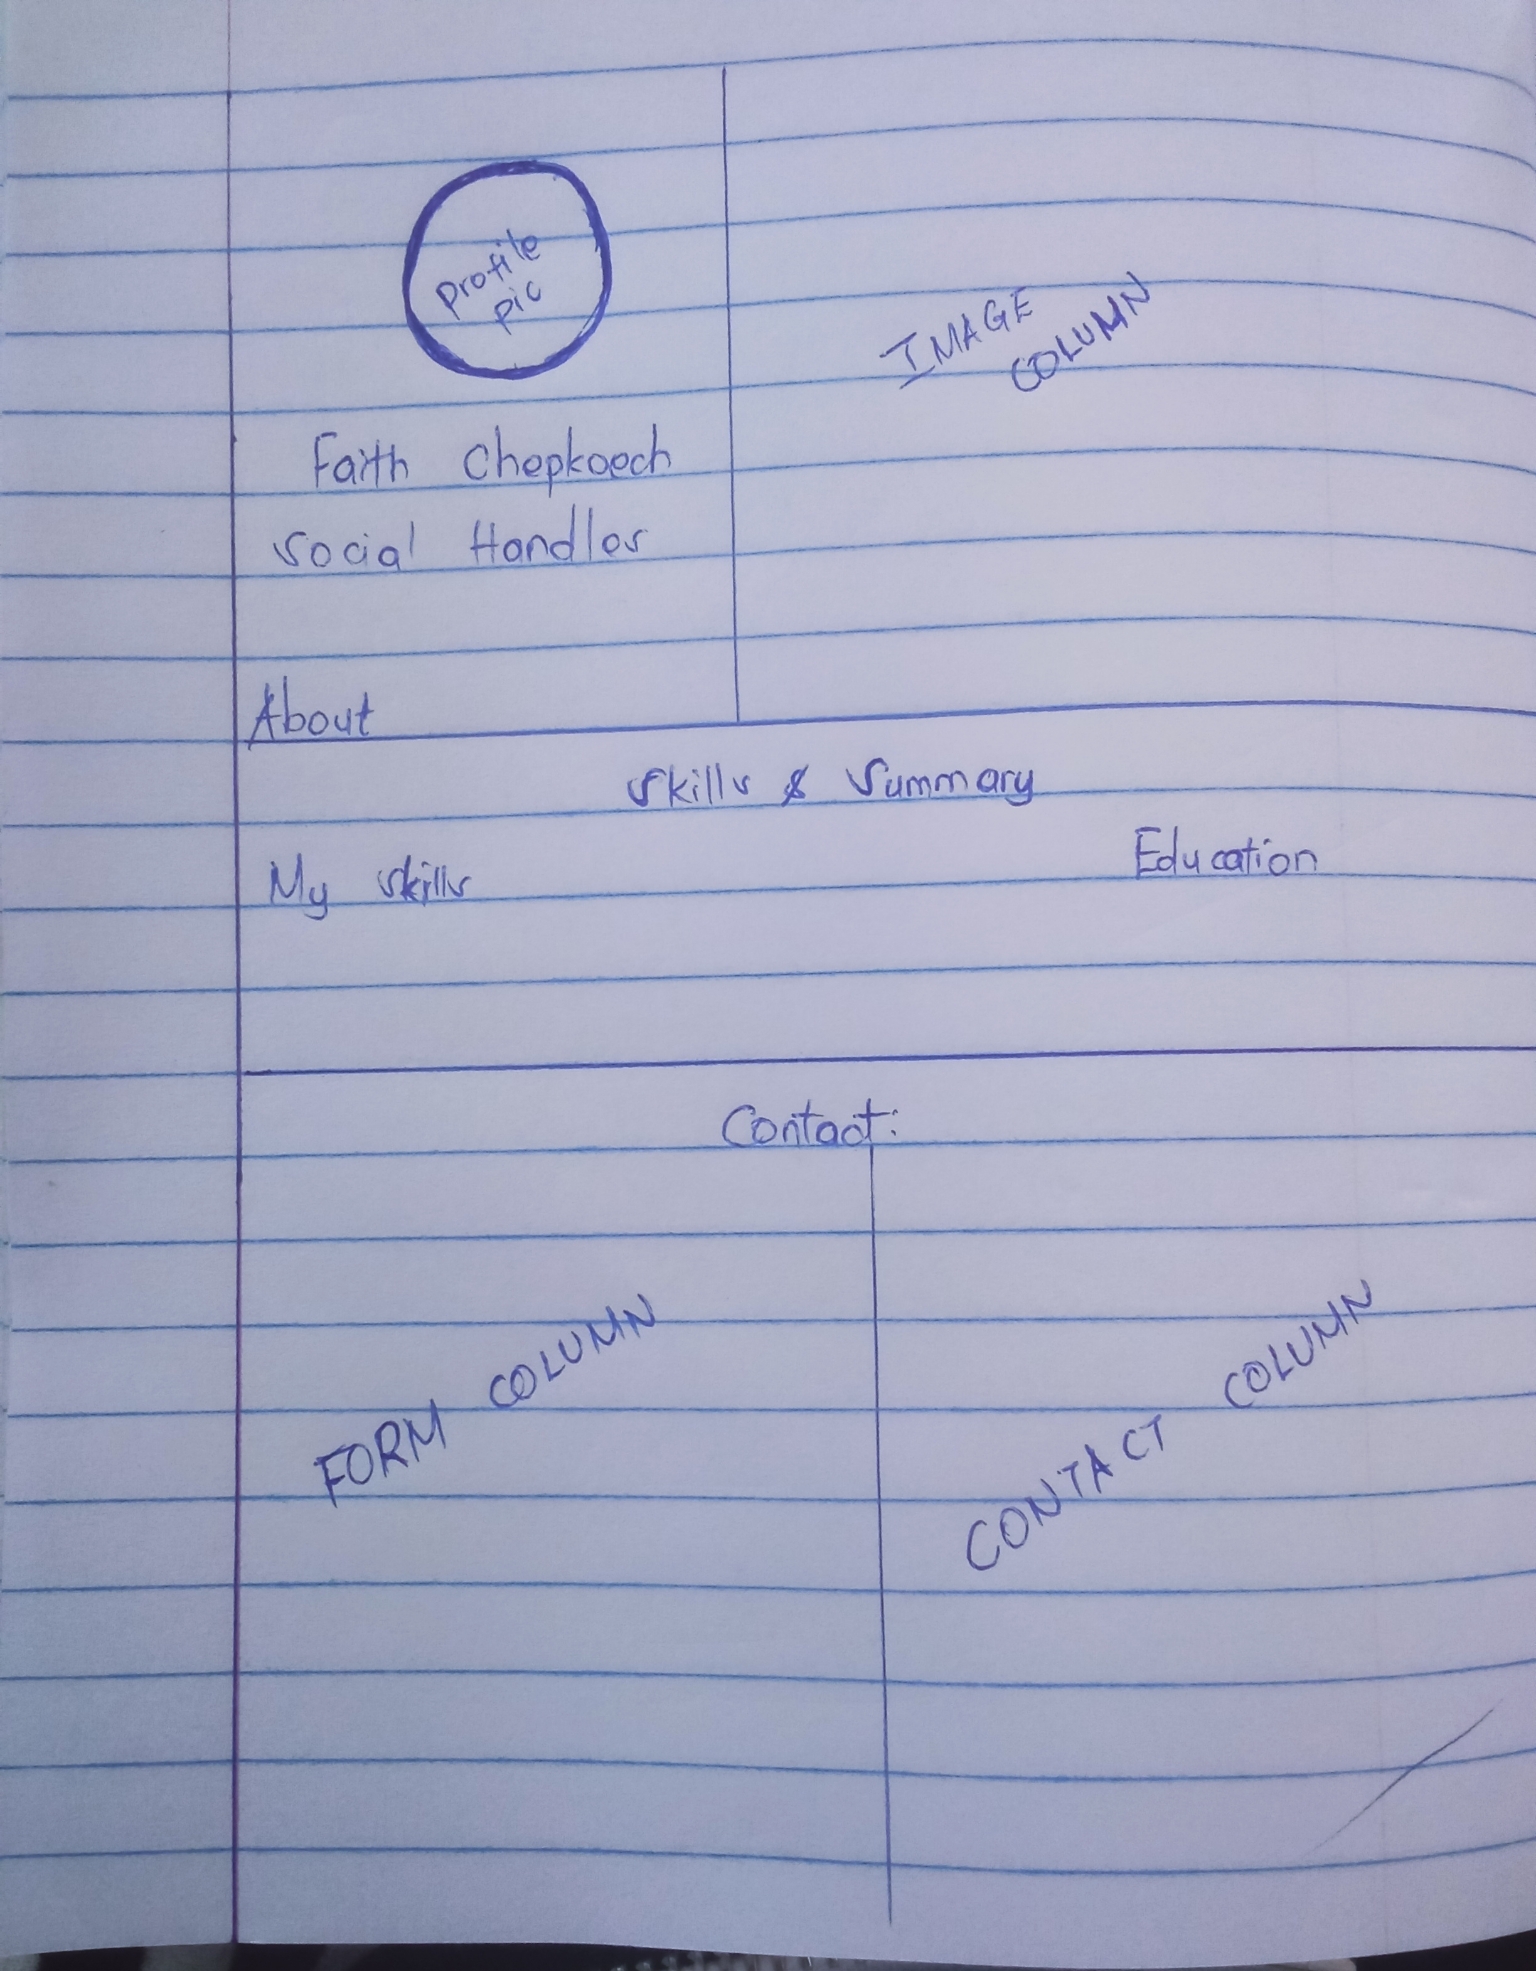 Profile
pic
IMAGE
COLUMN
Faith Chepkoech
Social Handles
About
Skills & Summary
My skills
Education
Contact:
FORM COLUMN
CONTACT COLUMN